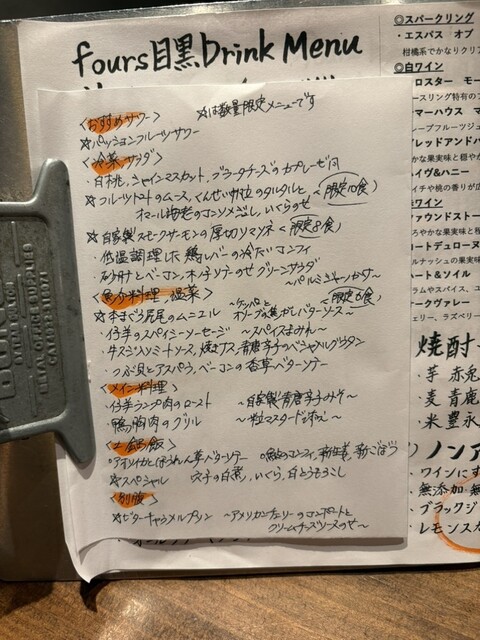 fours目黒 Drink Menu
☆は数量限定メニューです
<おすすめサワー>
☆パッションフルーツサワー
<冷菜・サラダ>
・白桃、シャインマスカット、ブラータチーズのカプレーゼ風
☆フルーツトマトのムース、くんせい帆立のタルタルと
オマール海老のコンソメジュレ、いくらのせ <限定10食>
☆自家製スモークサーモンの厚切りマリネ~ <限定8食>
・低温調理した鶏レバーの冷たいコンフィ
・砂肝とベーコン、木ノ子ソテーのせグリーンサラダ
~パルミジャーノがけ~
<魚介料理・温菜>
☆本まぐろ尾尾のムニエル ~ケッパーと
オリーブの焦がしバターソース~ <限定6食>
・仔羊のスパイシーソーセージ ~スパイスまみれ~
・牛スジハッシュドソース、焼きナス、青唐辛子のベシャメルグラタン
・つぶ貝とアスパラ、ベーコンの香草バターソテー
<メイン料理>
・仔羊ランプ肉のロースト ~自家製青唐辛子みそ~
・鴨胸肉のグリル ~粒マスタードを添え~
<土鍋飯>
・アオリイカとほうれん草バターソテー
・鮎のコンフィ、新生姜、新ごぼう
☆スペシャル 穴子の白煮、いくら、白とうもろこし
<別腹>
☆ビターキャラメルプリン ~アメリカンチェリーのコンポートと
クリームチーズソースのせ~
◎スパークリング
・エスパス オブ
柑橘系でかなりクリア
◎白ワイン
ロスター モー
ースリング特有のフ
マーハウス マ
レープフルーツジュ
レッドアンドバ
かな果実味と穏やか
イヴ&ハニー
イチや桃の香りが広
ワイン
ァウンドストー
ろやかな果実味と程
ートデュローヌ
ルナッシュの果実味
ハート&ソイル
ラムやスパイス、ユ
ークヴァレー
ェリー、ラズベリー
焼酎
・芋 赤兎
・麦 青鹿
・米 豊永
ノンア
・ワインにす
無添加 無
・ブラックジ
・レモンス